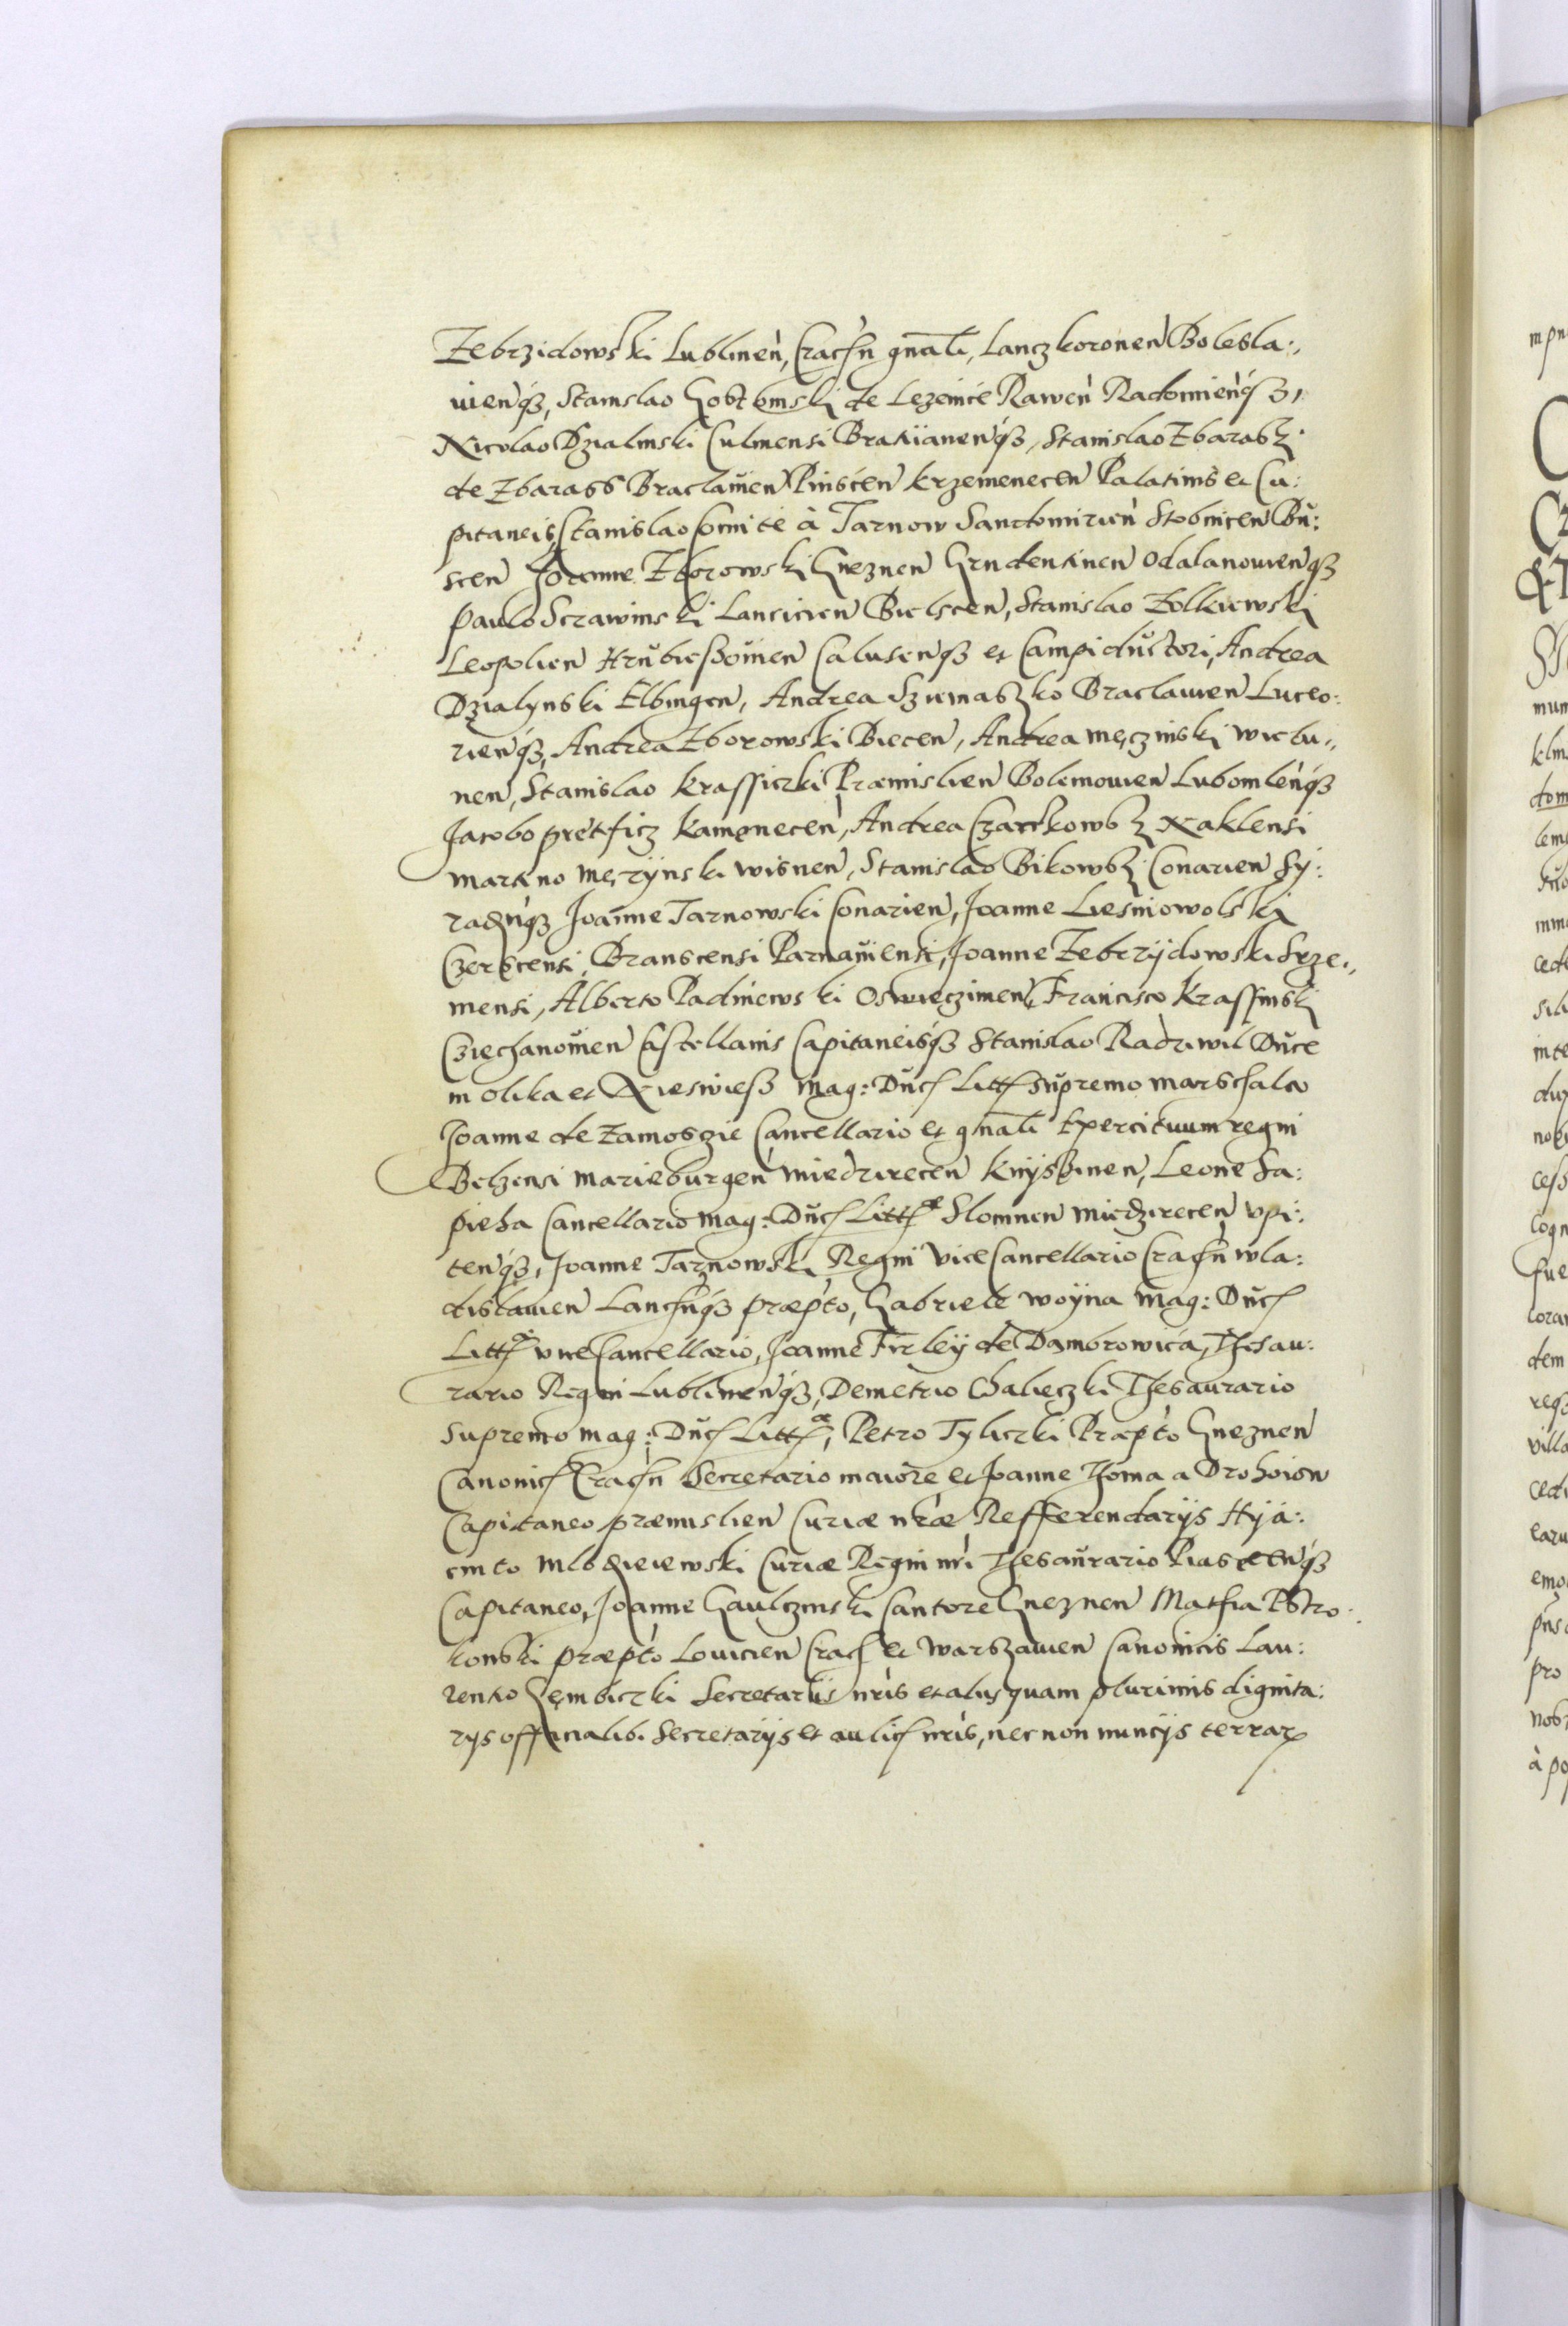 Zebrzidowski Lublinen, Cracħn gnali, Lanczkoronen Bolesla:,
uienq3, Stanislao Gostomski de Lezenice Rawen Radomienq3,
Nicolao Dzialinski Culmensi Bratiianenq3, Stanislao Zbarasz.
de Zbarass Braclauien Pinscen Krzemenecen Palatinis et Ca:
pitaneis, Stanislao Comite à Tarnow Sandomirien Stobnicen Bu:
scen Joanne Zborowski Gneznen Grudentinen Odalanouienq3
Paulo Scrawinski Lancicien Bielscen, Stanislao Zolkiewski
Leopolien Hrubiessouien Calusenq3 et Campiductori, Andrea
Dzialynski Elbingen, Andrea Szumaszko Braclauien Luceo:
rienq3, Andrea Zborowski Biecen, Andrea Męczinski Wielu,,
nen, Stanislao Krassiczki Præmislien Bolemouien Lubomlenq3
Jacobo Pretficz Kamenecen, Andrea Czarnkowsz Naklensi
Martino Męczynski Wisnen, Stanislao Bikowsz Conarien Sy:
radnq3 Joanne Tarnowski Conarien, Joanne Liesniowolski
Czerscensi Branscensi Parnauiensi, Joanne Zebrzydowski Srze:,
mensi, Alberto Padniewski Oswieczimen, Francisco Krassinski
Cziechanouien Castellanis Capitaneisq3 Stanislao Radziwil Duce
in Olika et Nieswiess Mag: Ducħ Littħ Supremo Marschalco
Joanne de Zamoszie Cancellario et gnali Exercituum regni
Belzensi Marieburgen Miedzirecen Knyszinen, Leone Sa:
pieha Cancellario Mag: Ducħ Littħæ Slonnen Miedzirecen Vpi:
tenq3, Joanne Tarnowski Regni ViceCancellario Cracħn Wla:
dislauien Lancħnq3 præpto, Gabriele Woyna Mag: Ducħ
Littħæ viceCancellario, Joanne Firley de Dambrowica, Thesau:
rario Regni Lublinenq3, Demetrio Chaleczki Thesaurario
Supremo Mag: Ducħ Littħæ, Petro Tyliczki Præpto Gneznen
Canonicħ Cracħn Secretario maiore et Joanne Thoma a Drohoiow
Capitaneo præmislien Curiæ nræ Refferendarijs Hyá:
cinto Mlodzieiewski Curiæ Regni nri Thesaurario Piascenq3
Capitaneo, Joanne Gaulczinski Cantore Gneznen Mathia Pstro:
konski præpto Louicien Cracħ et Warszauien Canonicis Lau:
rentio Gembiczki Secretarijs nris et alijs quam plurimis dignita:
rijs officialib. Secretarijs et aulicħ nris, nec non nuncijs terrar